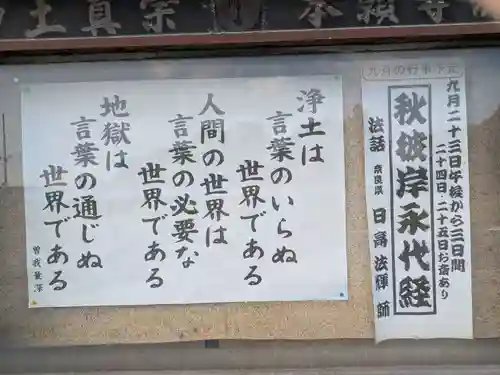 浄土真宗 本願寺
九月の行事予定
九月二十三日午候から三日間
二十四日・二十五日お斎あり
秋彼岸永代経
法話 奈良県 日高法輝師
浄土は
言葉のいらぬ
世界である
人間の世界は
言葉の必要な
世界である
地獄は
言葉の通じぬ
世界である
曽我量深